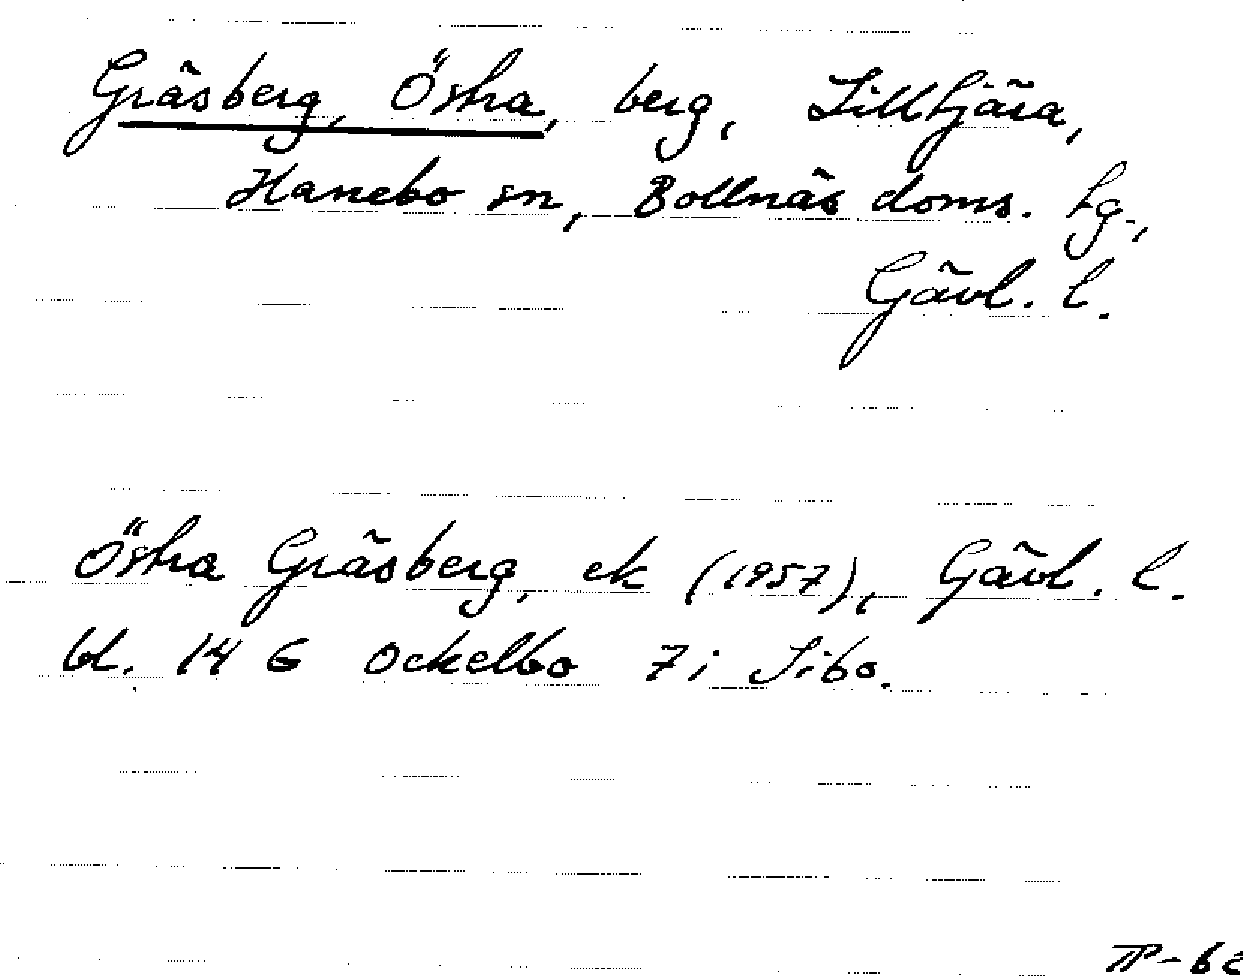 Gräsberg, Östra, berg, Lilltjära,
Hanebo sn, Bollnäs doms. hg.,
Gävl. l.
Östra Gräsberg, ek (1957), Gävl. l.
bl. 14 G Ockelbo 7i Sibo.